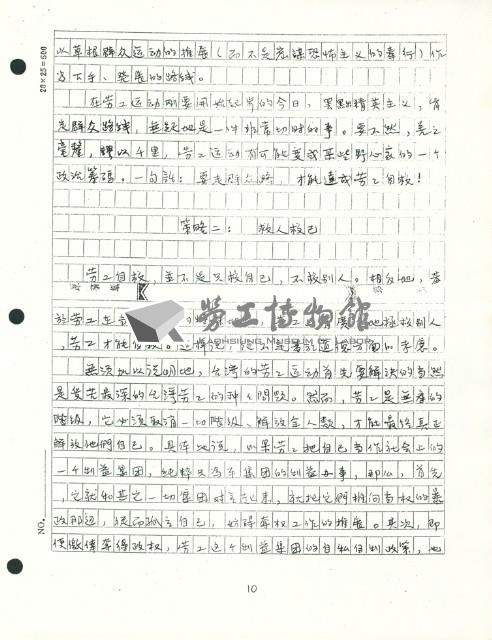 以草根群众运动的推展（而不是恐怖主义的暴行）作
为下手、发展的路线。
在劳工运动刚要开始起步的今日，黑點精英主义，肯
定群众路线，無疑地是一件非常切時的事。要不然，差之
毫釐，謬以千里，劳工运动有可能变成某些野心家的一个
政治筹码。一句話：要走群众路，才能達成劳工自救！
策略二：救人救己
劳工自救，並不是只救自己，不救别人。相反地，劳
地拯救别人
，劳工才能自救。这样说
無須加以说明地，台湾的劳工运动首先要解决的当然
是受苦最深的台湾劳工的种种問题。然而，劳工是無産的
階级，它必须取消一切階级、解放全人類，才能最终真正
解放他們自己。具体地说，如果劳工把自己当作社会上的
一个利益集团，純粹只为本集团的利益办事，那么，首先
，它就和其它一切集团对立起来，就把它們推向当权的暴
政那边，從而孤立自己，妨碍奪权工作的推展。其次，即
便徼倖奪得政权，劳工这个利益集团的自私自利政策，也
NO.
20×25=500
勞工博物館
KAOHSIUNG MUSEUM OF LABOR
10